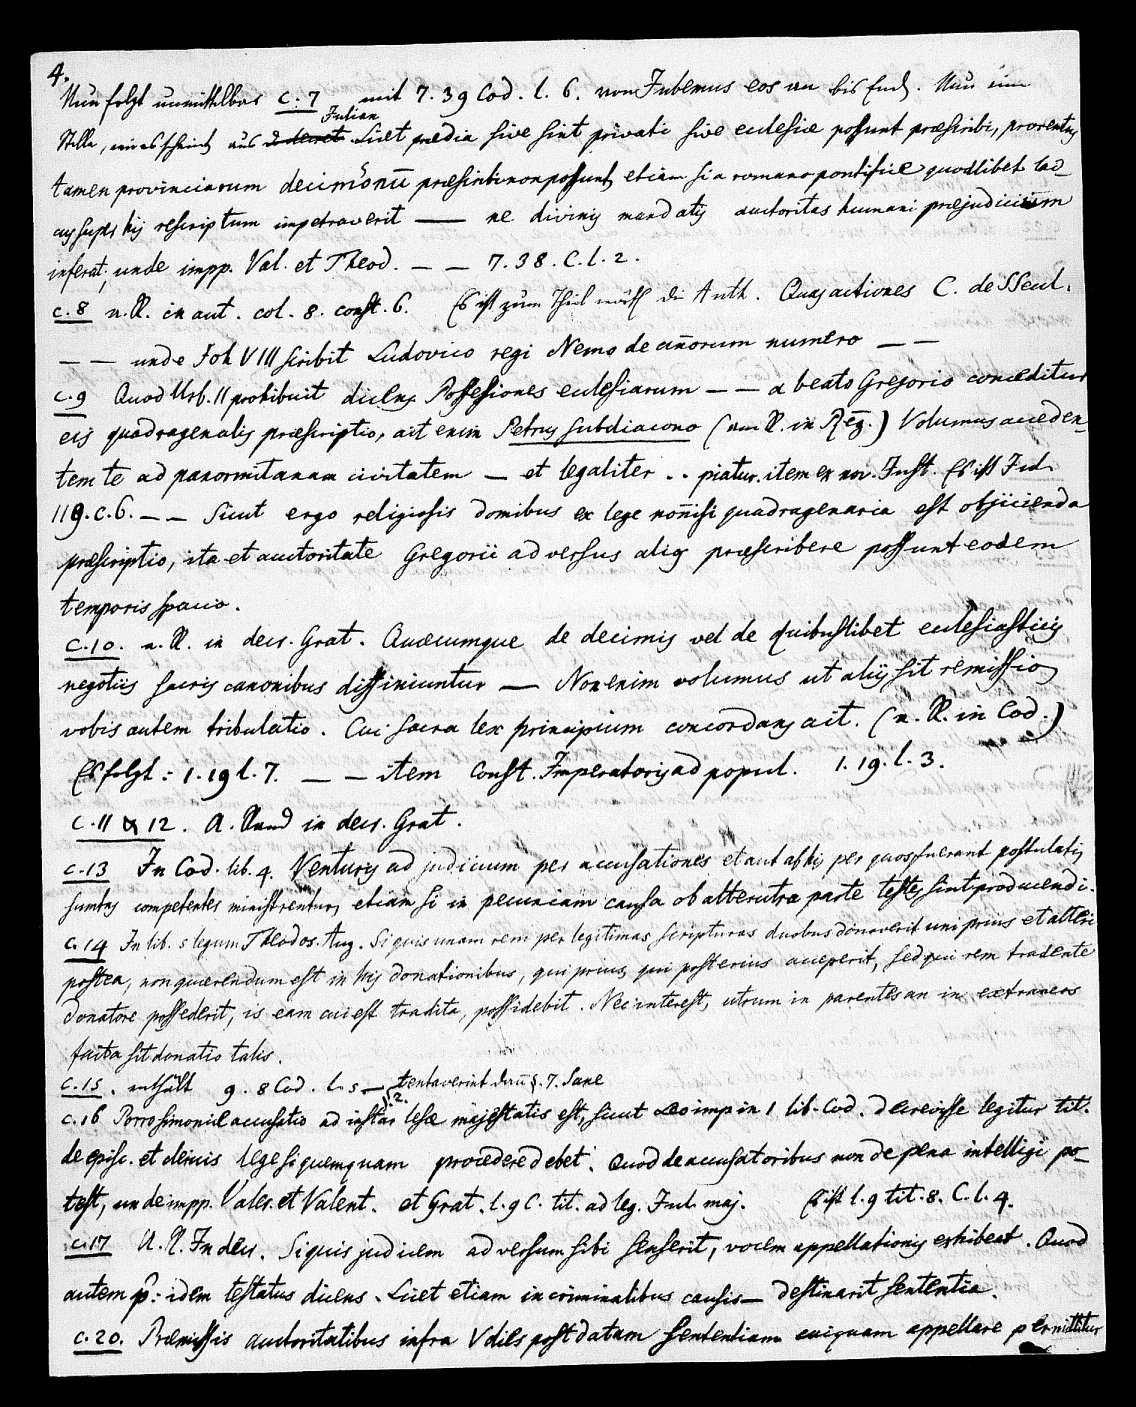 4.
Nun folgt unmittelbar c. 7 mit 7. 39 Cod. l. 6. von Jubemus eos an bis Ende. Nun eine
Julian
Stelle, wie es scheint aus Licet prædia sive sint privati sive ecclesiæ possunt præscribi, proventus
tamen provinciarum præscribi non possunt, etiam si a romano pontifice quodlibet lad-
super his rescriptum impetraverit — ne divinis mandatis auctoritas humani præjudicium
inferat; unde impp. Val. et Theod. — — 7. 38. C. l. 2.
c. 8 u. R. in aut. col. 8. const. 6. Es ist zum Theil die Auth. Quas actiones C. de SS eccl.
— — unde Joh VIII scribit Ludovico regi Nemo de anorum numero — —
c. 9 Quod Urb. II prohibuit dicens Possessiones eclesiarum — — a beato Gregorio conceditur
eis quadragenalis præscriptio, ait enim Petrus subdiacono (am R. in Reg.) Volumus acceden-
tem te ad panormitanam civitatem — et legaliter .. piatur. item ex nov. Just. Es ist Jul.
119. c. 6. — — Sicut ergo religiosis domibus ex lege nonnisi quadragenaria est objicienda
præscriptio, ita et auctoritate Gregorii adversus alios præscribere possunt eodem
temporis spacio.
c. 10. a. R. in decr. Grat. Quæcumque de decimis vel de quibuslibet ecclesiasticis
negotiis sacris canonibus diffiniuntur — Non enim volumus ut aliis sit remissio,
vobis autem tribulatio. Cui sacra lex principium concordans ait. (a. R. in Cod.)
Es folgt: 1. 19 l. 7. — — item Const. Imperatoris ad popul. 1. 19. l. 3.
c. 11 & 12. A. Rand in decr. Grat.
c. 13 In Cod. lib. 4. Venturis ad judicium per accusationes et aut astis per quos fuerant postulatis
sumtus competentes ministrentur, etiam si in pecuniam causa ob alterutra parte testes sint producendi.
c. 14 In lib. 5 legum Theodos. Aug. Si quis unam rem per legitimas scripturas duobus donaverit uni prius et alteri
postea, non querendum est in his donationibus, qui prius, qui posterius acceperit, sed qui rem tradente
donatore possederit, is eam cui est tradita, possidebit. Nec interest, utrum in parentes an in extraneos
facta sit donatio talis.
c. 15. enthält 9. 8 Cod. l. 5 — tentaverint dann §. 7. Sane
§. 2.
c. 16 Porro simoniæ accusatio ad instar lesæ majestatis est, sicut Leo imp in 1 lib. Cod. decrevisse legitur tit.
de episc. et clericis lege si quemquam procedere debet. Quod de accusatoribus non de plena intelligi po-
test, unde impp. Vales. et Valent. et Grat. l. 9 C. tit. ad leg. Jul. maj. Es ist l. 9 tit. 8. C. l. 4.
c. 17 A. R. In decr. Si quis judicem adversum sibi senserit, vocem appellationis exhibeat. Quod
autem p: idem testatus dicens. Licet etiam in criminalibus causis — destinarit sententia.
c. 20. Præmissis auctoritatibus infra V dies post datam sententiam cuiquam appellare permittitur